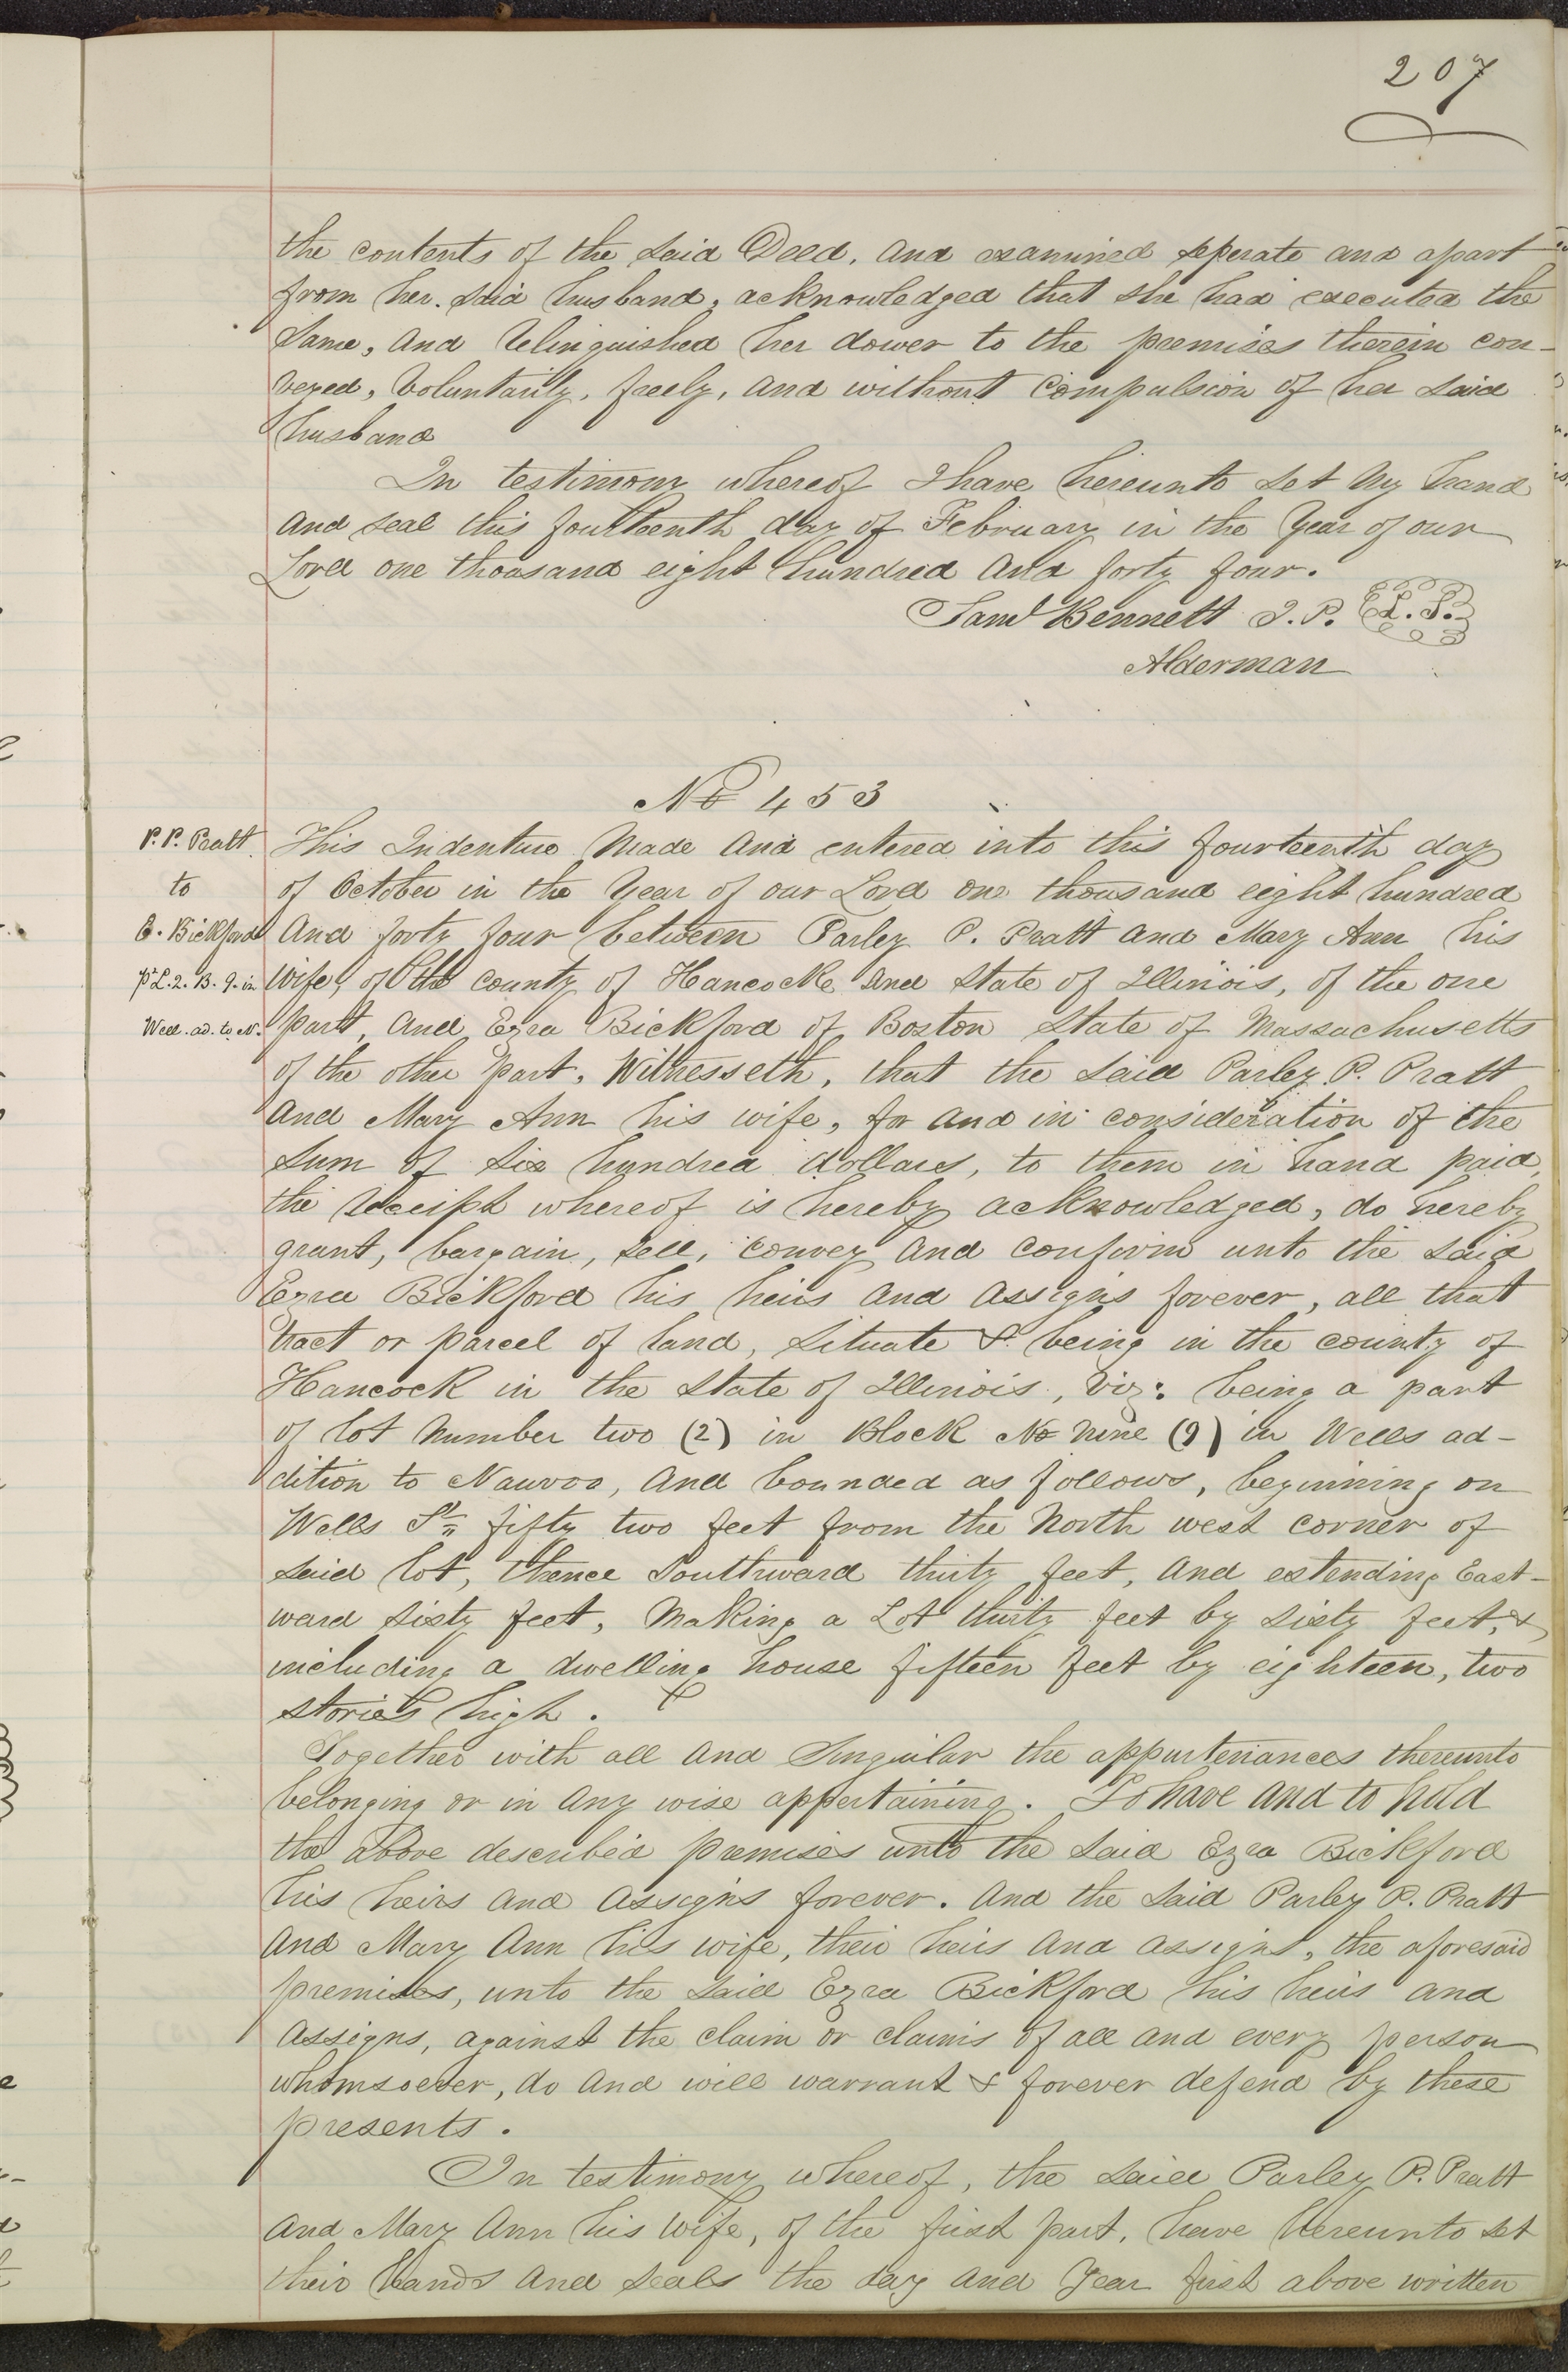 207
the contents of the said Deed, and examined seperate and apart
from her said husband, acknowledged that she had executed the
same, and relinquished her dower to the premises therein con-
veyed, voluntarily, freely, and without compulsion of her said
husband
In testimony whereof I have hereunto set my hand
and seal this fourteenth day of February in the year of our
Lord one thousand eight hundred and forty four.
Saml Bennett J.P. L.S.
Alderman
No 453
P. P. Pratt
to
E. Bickford
pt L. 2. B. 9. in
Well. ad. to N.
This Indenture made and entered into this fourteenth day
of October in the year of our Lord one thousand eight hundred
and forty four between Parley P. Pratt and Mary Ann his
wife, of the county of Hancock and State of Illinois, of the one
part, and Ezra Bickford of Boston State of Massachusetts
of the other part, Witnesseth, that the said Parley P. Pratt
and Mary Ann his wife, for and in consideration of the
sum of six hundred dollars, to them in hand paid,
the receipt whereof is hereby acknowledged, do hereby
grant, bargain, sell, convey and confirm unto the said
Ezra Bickford his heirs and assigns forever, all that
tract or parcel of land, situate & being in the county of
Hancock in the State of Illinois, viz: being a part
of lot number two (2) in Block No nine (9) in Wells ad-
dition to Nauvoo, and bounded as follows, beginning on
Wells St fifty two feet from the North west corner of
said lot, thence Southward thirty feet, and extending East-
ward sixty feet, making a Lot thirty feet by sixty feet, &
including a dwelling house fifteen feet by eighteen, two
stories high.
Together with all and singular the appurtenances thereunto
belonging or in any wise appertaining. To have and to hold
the above described premises unto the said Ezra Bickford
his heirs and assigns forever. And the said Parley P. Pratt
and Mary Ann his wife, their heirs and assigns, the aforesaid
premises, unto the said Ezra Bickford his heirs and
assigns, against the claim or claims of all and every person
whomsoever, do and will warrant & forever defend by these
presents.
In testimony whereof, the said Parley P. Pratt
and Mary Ann his wife, of the first part, have hereunto set
their hands and seals the day and year first above written